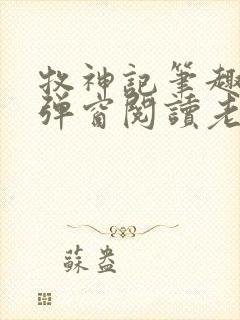 牧神記筆趣
弹窗閱讀老
蘇盎